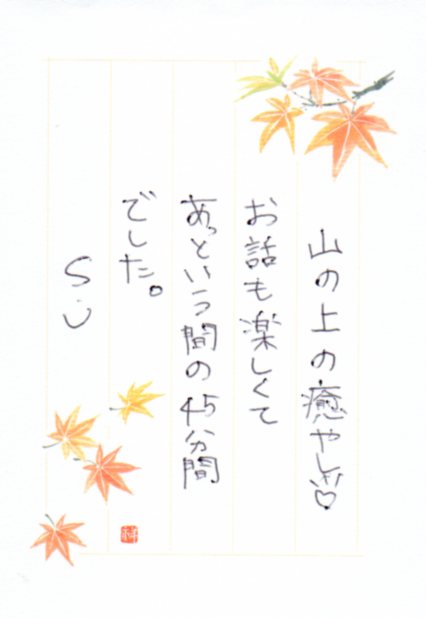 山の上の癒やし♡
お話も楽しくて
あっという間の45分間
でした。
S.U